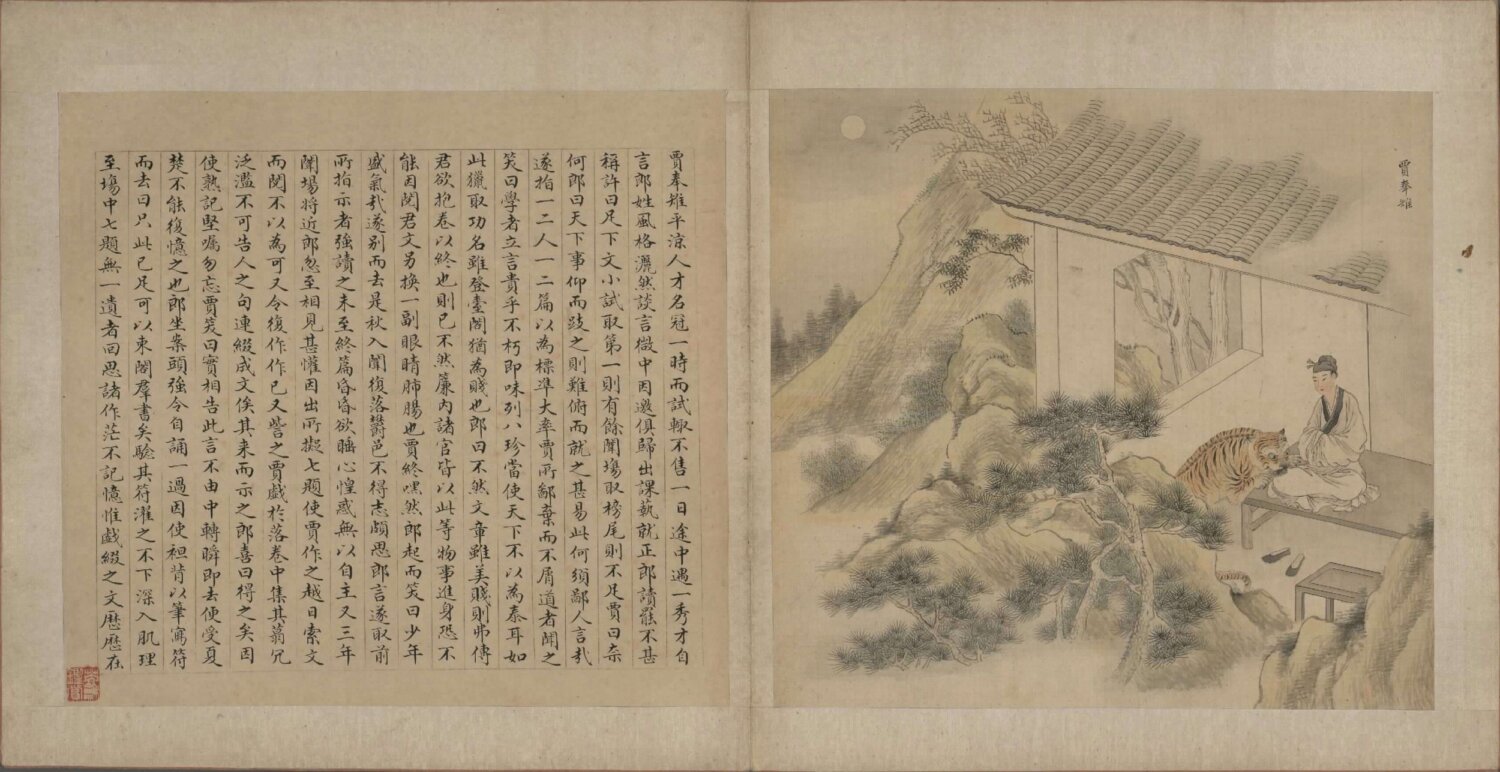 賈奉雉
賈奉雉平涼人才名冠一時而試輒不售一日途中遇一秀才自
言郎姓風格灑然談言微中因邀俱歸出課藝就正郎讀罷不甚
稱許曰足下文小試取第一則有餘闈場取榜尾則不足賈曰奈
何郎曰天下事仰而跂之則難俯而就之甚易此何須鄙人言哉
遂指一二人一二篇以為標準大率賈所鄙棄而不屑道者聞之
笑曰學者立言貴乎不朽即味列八珍當使天下不以為泰耳如
此獵取功名雖登臺閣猶為賤也郎曰不然文章雖美賤則弗傳
君欲抱卷以終也則已不然簾內諸官皆以此等物事進身恐不
能因閱君文另換一副眼睛肺腸也賈終嘿然郎起而笑曰少年
盛氣哉遂別而去是秋入闈復落鬱邑不得志頗思郎言遂取前
所指示者強讀之未至終篇昏昏欲睡心惶惑無以自主又三年
闈場將近郎忽至相見甚懽因出所擬七題使賈作之越日索文
而閱不以為可又令復作作已又訾之賈戲於落卷中集其蕪冗
泛濫不可告人之句連綴成文俟其来而示之郎喜曰得之矣因
使熟記堅囑勿忘賈笑曰實相告此言不由中轉瞬即去便受夏
楚不能復憶之也郎坐案頭強令自誦一過因使袒背以筆寫符
而去曰只此已足可以束閣羣書矣驗其符濯之不下深入肌理
至塲中七題無一遺者回思諸作茫不記憶惟戲綴之文歷歷在